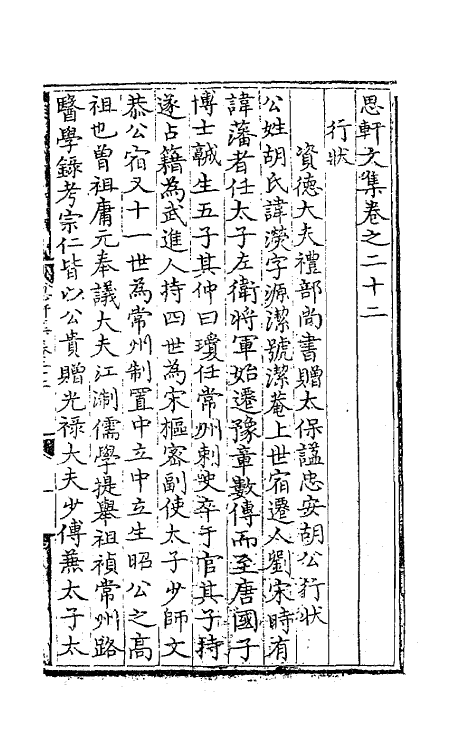 思軒文集卷之二十二
行狀
資德大夫禮部尚書贈太保諡忠安胡公行狀
公姓胡氏諱濙字源潔號潔菴上世宿遷人劉宋時有
諱藩者任太子左衛將軍始遷豫章數傳而至唐國子
博士誠生五子其仲曰瓊任常州刺史卒于官其子持
遂占籍為武進人持四世為宋樞密副使太子少師文
恭公宿又十一世為常州制置中立中立生昭公之高
祖也曾祖庸元奉議大夫江淛儒學提舉祖禎常州路
醫學錄考宗仁皆以公貴贈光祿大夫少傅兼太子太